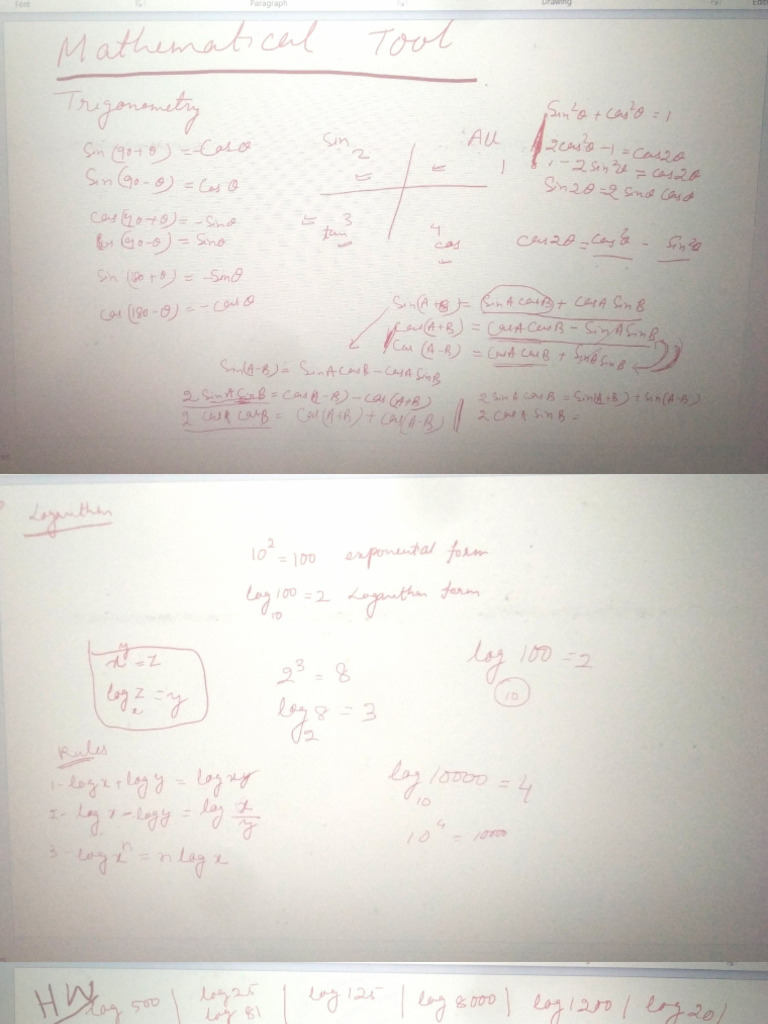 Font Paragraph Drawing
Mathematical Tool
Trigonometry
Sin (90+θ) = -Cosθ
Sin (90-θ) = Cosθ
cos(90+θ) = -Sinθ
(90-θ) = Sinθ
Sin (180+θ) = -Sinθ
cos (180-θ) = -cosθ
Sin 2
All 1
tan 3
4 cos
Sin²θ + cos²θ = 1
2cos²θ - 1 = cos2θ
1 - 2 Sin²θ = cos2θ
Sin2θ = 2 Sinθ cosθ
cos2θ = cos²θ - Sin²θ
Sin(A+B) = SinA cosB + cosA SinB
cos(A+B) = cosA cosB - SinA SinB
Cos (A-B) = cosA cosB + SinA SinB
Sin(A-B) = SinA cosB - cosA SinB
2 SinA SinB = cos(A-B) - cos(A+B)
2 cosA cosB = Cos(A+B) + cos(A-B)
2 SinA cosB = Sin(A+B) + Sin(A-B)
2 cosA SinB =
Logarithm
10² = 100 exponential form
log₁₀ 100 = 2 Logarithm form
x^y = z
logₓ z = y
2³ = 8
log₂ 8 = 3
log₁₀ 100 = 2
Rules
1- log x + log y = log xy
2- log x - log y = log x/y
3- log xⁿ = n log x
log₁₀ 10000 = 4
10⁴ = 10000
HW
log 500 | log 25 | log 125 | log 8000 | log 1200 | log 20 |
log 81